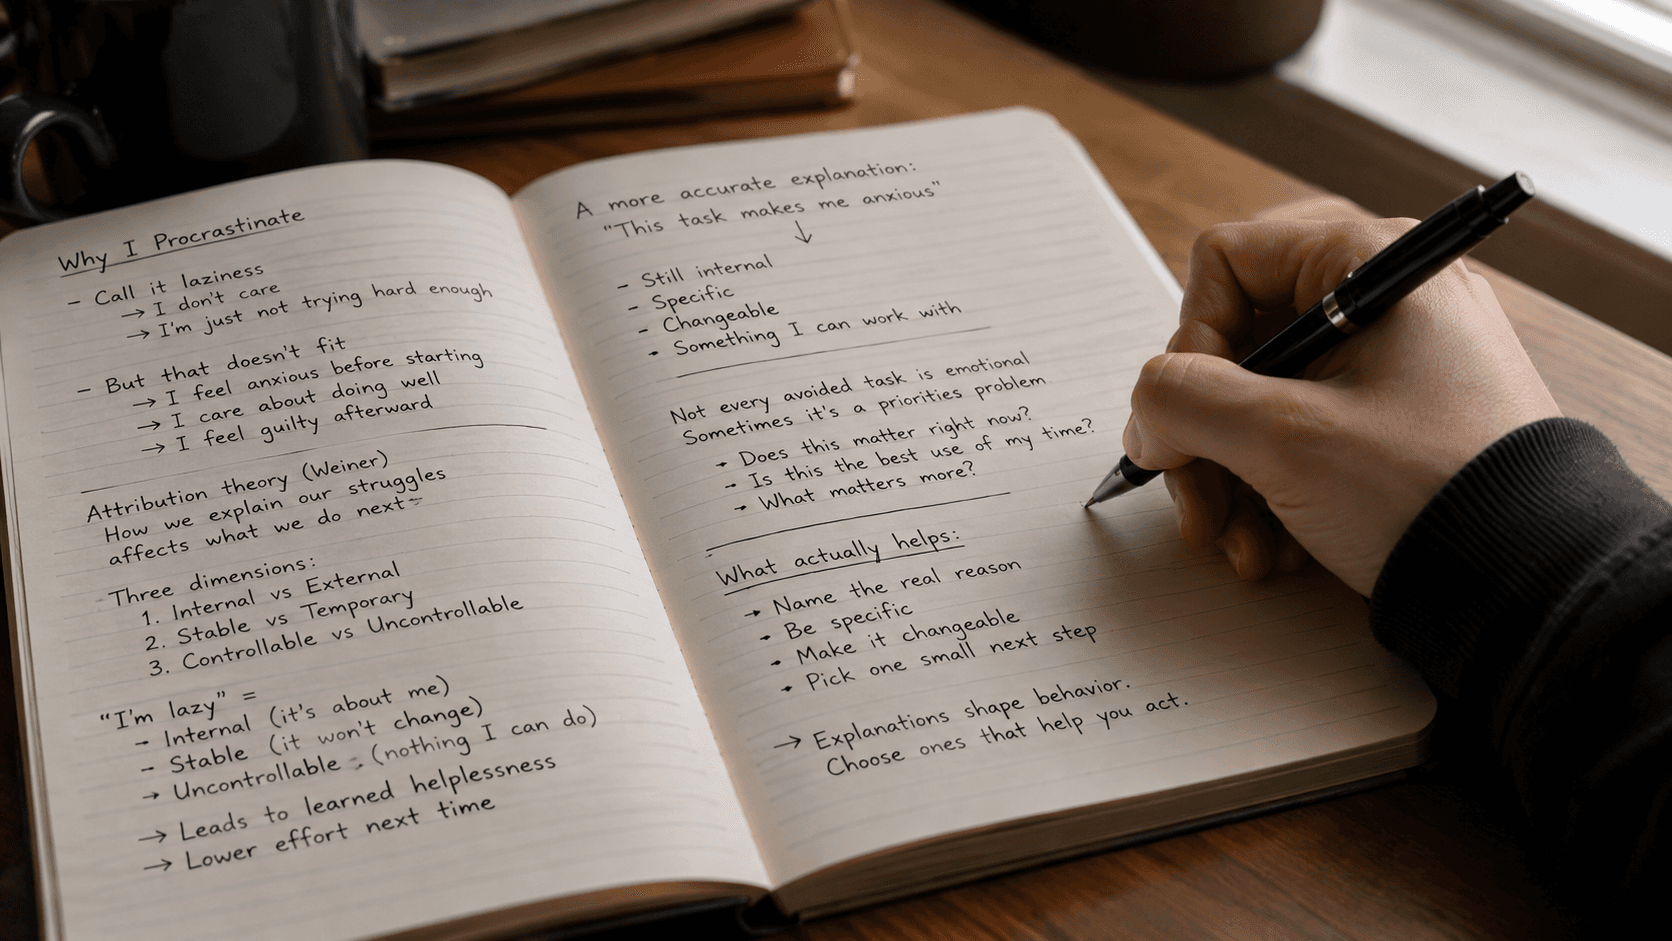 Why I Procrastinate
- Call it laziness
→ I don't care
→ I'm just not trying hard enough
- But that doesn't fit
→ I feel anxious before starting
→ I care about doing well
→ I feel guilty afterward
Attribution theory (Weiner)
How we explain our struggles
affects what we do next
Three dimensions:
1. Internal vs External
2. Stable vs Temporary
3. Controllable vs Uncontrollable
"I'm lazy" =
- Internal (it's about me)
- Stable (it won't change)
→ Uncontrollable (nothing I can do)
→ Leads to learned helplessness
→ Lower effort next time
A more accurate explanation:
"This task makes me anxious"
↓
- Still internal
- Specific
- Changeable
- Something I can work with
Not every avoided task is emotional
Sometimes it's a priorities problem
→ Does this matter right now?
- Is this the best use of my time?
→ What matters more?
What actually helps:
→ Name the real reason
→ Be specific
→ Make it changeable
→ Pick one small next step
→ Explanations shape behavior.
Choose ones that help you act.